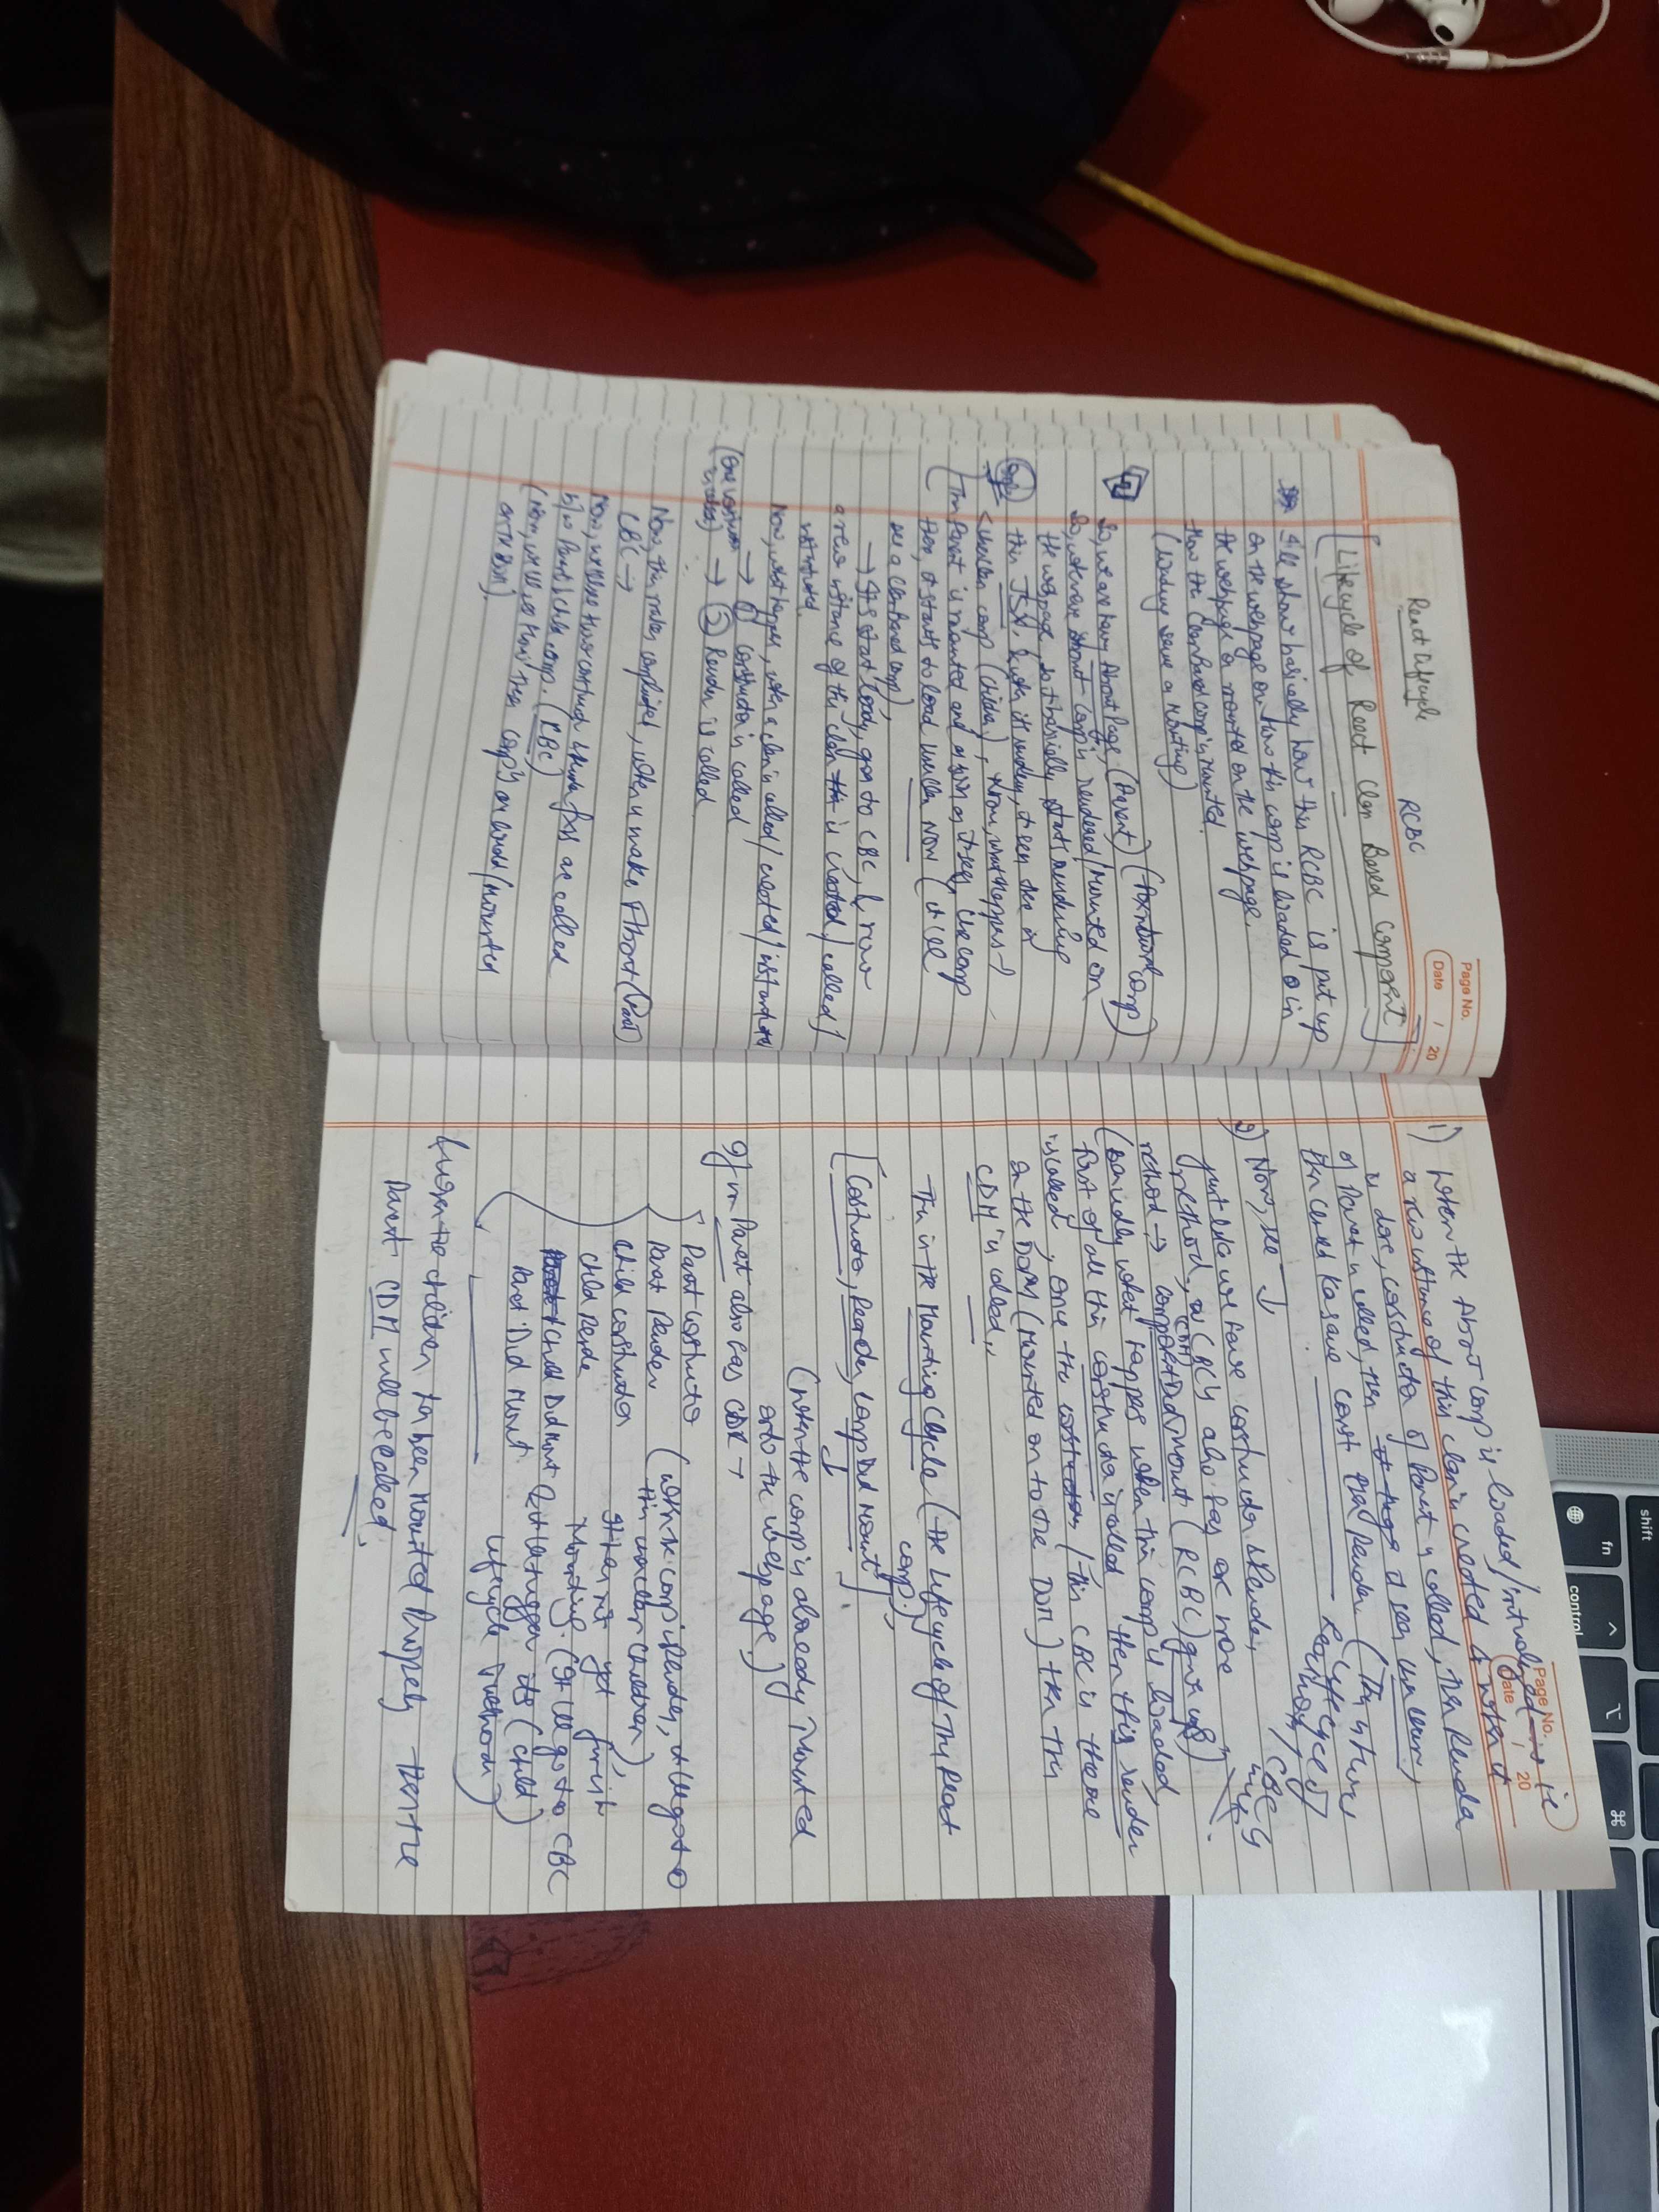 React Lifecycle RCBC
Page No.
Date / 20
Lifecycle of React Class Based Component
I'll show basically how this RCBC is put up
on the webpage or how this comp is loaded in
the webpage or mounted on the webpage.
How the Class Based comp is mounted
(loading same as mounting)
So, we are having About Page, (Parent) (Functional comp)
So, whenever About Comp is rendered/Mounted on
the webpage, so it basically starts rendering
this JSX, & when it renders, it sees there is
<UserClass comp (Child), Now, what happens →
This Parent is mounted and as soon as it sees, the comp
then, it starts to load UserClass Now (it'll
see a class Based comp),
→ It'll start loading, goes to CBC, & now
a new instance of this class is created/called/
instantiated.
Now, what happens, when a class is called/created/instantiated
→ ① constructor is called
(One
→ ② Render is called
Now, this makes complicated, when u make About (Parent)
CBC →
Now, we'll see how constructor & render fxs are called
b/w Parent & child comp. (CBC)
(Now, we'll see how these comp's on loaded/mounted
on the DOM).
Page No.
Date / 20
1) When the About Comp is loaded/initialized is ie
a new instance of this class is created & when it
is done, constructor of Parent is called, then Render
of Parent is called, then it sees <UserClass>,
then child ka same const phir Render (This is the
Lifecycle of
2) Now, see ↓
just like we have constructor & Render,
method, in CBC's also has one more
method → componentDidMount (RCBC) gives us)
(CDM)
(basically what happens when this comp is loaded,
first of all this constructor is called then this render
is called, once the / this CBC is there
on the DOM (Mounted on to the DOM) then this
CDM is called,,
This is the Mounting Cycle (the Lifecycle of This React
comp.)
[Constructor, Render, Comp Did Mount]
(when the comp is already Mounted
onto the webpage)
If m Parent also has CDM →
Parent Constructor
Parent Render (when the comp is Render, it'll go to
this UserClass (Children)
Child Constructor
Child Render It has not yet finish
Mounting. (It'll go to CBC
Child Did Mount & it'll trigger its (child)
Parent Did Mount lifecycle Method)
(when the children has been mounted properly then the
Parent CDM will be called.
shift
fn
control